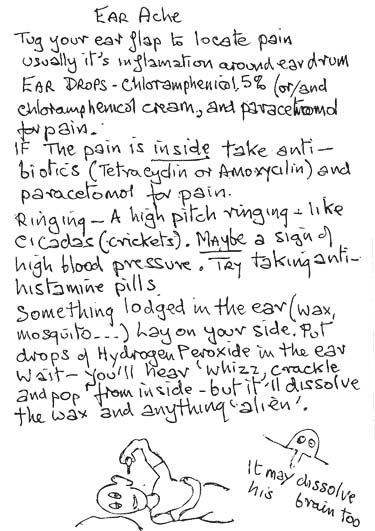 EAR ACHE
Tug your ear flap to locate pain
usually it's inflamation around ear drum
EAR DROPS - Chloramphenicol, 5% (or/and
chloramphenicol cream, and paracetomol
for pain.
IF The pain is inside take anti-
biotics (Tetracydin or Amoxycilin) and
paracetomol for pain.
Ringing - A high pitch ringing - like
cicadas (crickets). MAYBE a sign of
high blood pressure. TRY taking anti-
histamine pills
Something lodged in the ear (wax,
mosquito...) Lay on your side. Put
drops of Hydrogen Peroxide in the ear
Wait - you'll hear 'whizz, crackle
and pop' from inside - but it'll dissolve
the wax and anything 'alien'.
It may dissolve
his brain too